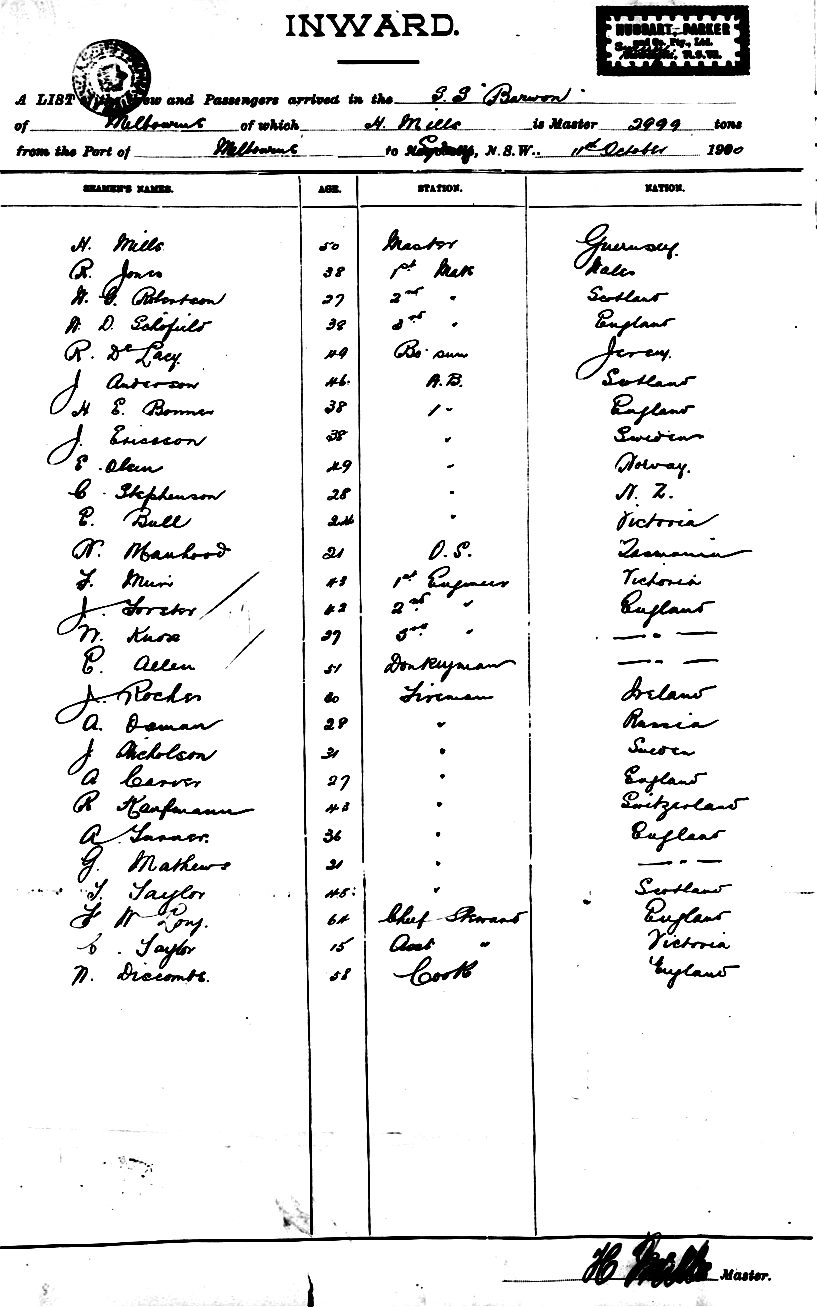 INWARD.
HUDDART, PARKER
and Co. Pty., Ltd.
N.S.W.
A LIST of the Crew and Passengers arrived in the S.S "Barwon"
of Melbourne of which H. Mills is Master 2999 tons
from the Port of Melbourne to Sydney, N.S.W., 11th October 1900
SEAMEN'S NAMES. AGE. STATION. NATION.
H. Mills 50 Master Guernsey.
R. Jones 38 1st Mate Wales
W. G. Robertson 27 2nd " Scotland
D. Schofield 38 3rd " England
R. De Lacy 49 Bo'sun Jersey.
J Anderson 46 A.B. Scotland
H E. Bonner 38 " England
J. Ericsson 38 " Sweden
E. Olsen 49 " Norway.
C. Stephenson 28 " N. Z.
E. Bull 24 " Victoria
W. Manhood 21 O.S. Tasmania
Muir 43 1st Engineer Victoria
J. Forster 42 2nd " England
W. Knox 27 3rd " — " —
E. Allen 51 Donkeyman — " —
J. Roches 30 Fireman Ireland
A. Osman 28 " Russia
J Nicholson 31 " Sweden
A Carver 27 " England
R Kaufmann 43 " Switzerland
A Turner. 36 " England
G. Mathews 21 " — " —
T. Taylor 45 " Scotland
F W Long. 64 Chief Steward England
C. Taylor 15 Asst " Victoria
W. Discombe. 58 Cook England
H Mills Master.